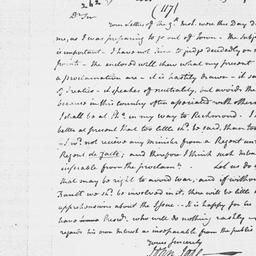 (117)
Dr Sir
Your Letters of the 9th Inst. were this Day de
me, as I was preparing to go out of Town. The Subj
is important – I have not time to judge decidedly on s
points – the enclosed will shew what my present
a proclamation are – it is hastily drawn – it sa
of Treaties – it speaks of neutrality, but avoids the
because in this country often associated with others
I shall be at Pha. in my way to Richmond. I
better at present that too little shd. be said, than too
I wd. not receive any minister from a Regent unt
Regent de facto; and therefore I think such
inferable from the proclamn. Let us do
that may be right to avoid war; and if without
Fault we shd. be involved in it, there will be little
apprehensions about the Issue. It is happy for us
have a Presdt. who will do nothing rashly
regards his own Interest as inseparable from the public
Yours Sincerely
John Jay